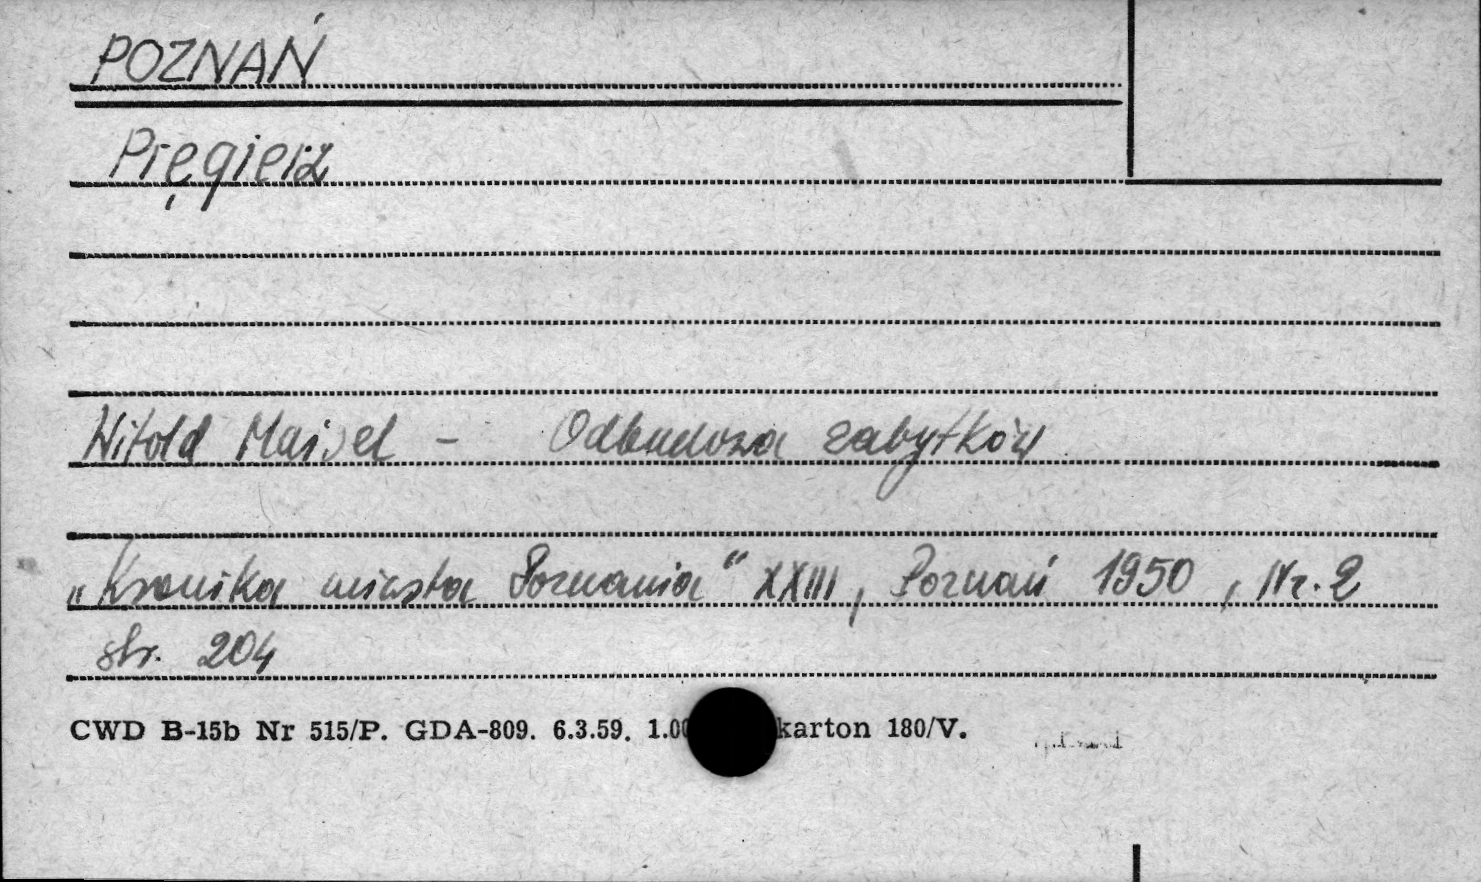 POZNAŃ
Pręgierz
Witold Maisel - Odbudowa zabytków
„Kronika miasta Poznania" XXIII, Poznań 1950, Nr. 2
str. 204
CWD B-15b Nr 515/P. GDA-809. 6.3.59. 1.00 karton 180/V.